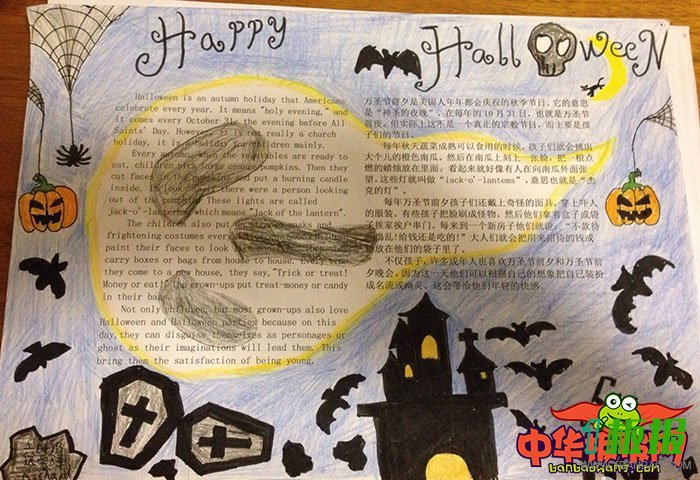 Happy Halloween
Halloween is an autumn holiday that Americans
celebrate every year. It means "holy evening," and
it comes every October 31, the evening before All
Saints' Day. However, it is not really a church
holiday, it is a holiday for children mainly.
Every autumn, when the vegetables are ready to
eat, children pick large orange pumpkins. Then they
cut faces in the pumpkins and put a burning candle
inside. It looks as if there were a person looking
out of the pumpkin! These lights are called
jack-o'-lanterns, which means "Jack of the lantern".
The children also put on masks and
frightening costumes every
paint their faces to look
carry boxes or bags from house to house. Every time
they come to a new house, they say, "Trick or treat!
Money or eat!" The grown-ups put treat-money or candy
in their bags.
Not only children, but most grown-ups also love
Halloween and Halloween parties because on this
day, they can disguise themselves as personages or
ghost as their imaginations will lead them. This
bring them the satisfaction of being young.
万圣节前夕是美国人年年都会庆祝的秋季节日。它的意思
是“神圣的夜晚”，在每年的10月31日，也就是万圣节
前夜。但实际上这不是一个真正的宗教节日，而主要是孩
子们的节日。
每年秋天蔬菜成熟可以食用的时候，孩子们就会挑出
大个儿的橙色南瓜。然后在南瓜上刻上一张脸，把一根点
燃的蜡烛放在里面。看起来就好像有人在向南瓜外面张
望。这些灯就叫做“iack-o'-lantems”，意思也就是“杰
克的灯”。
每年万圣节前夕孩子们还戴上奇怪的面具，穿上吓人
的服装。有些孩子把脸刷成怪物。然后他们拿着盒子或袋
子挨家挨户串门。每来到一个新房子他们就说：“不款待
就捣乱!给钱还是吃的!”大人们就会把用来招待的钱或
糖放在他们的袋子里了。
不仅孩子，许多成年人也喜欢万圣节前夕和万圣节前
夕晚会。因为这一天他们可以根据自己的想象把自己装扮
成名流或幽灵。这会带给他们年轻的快感。